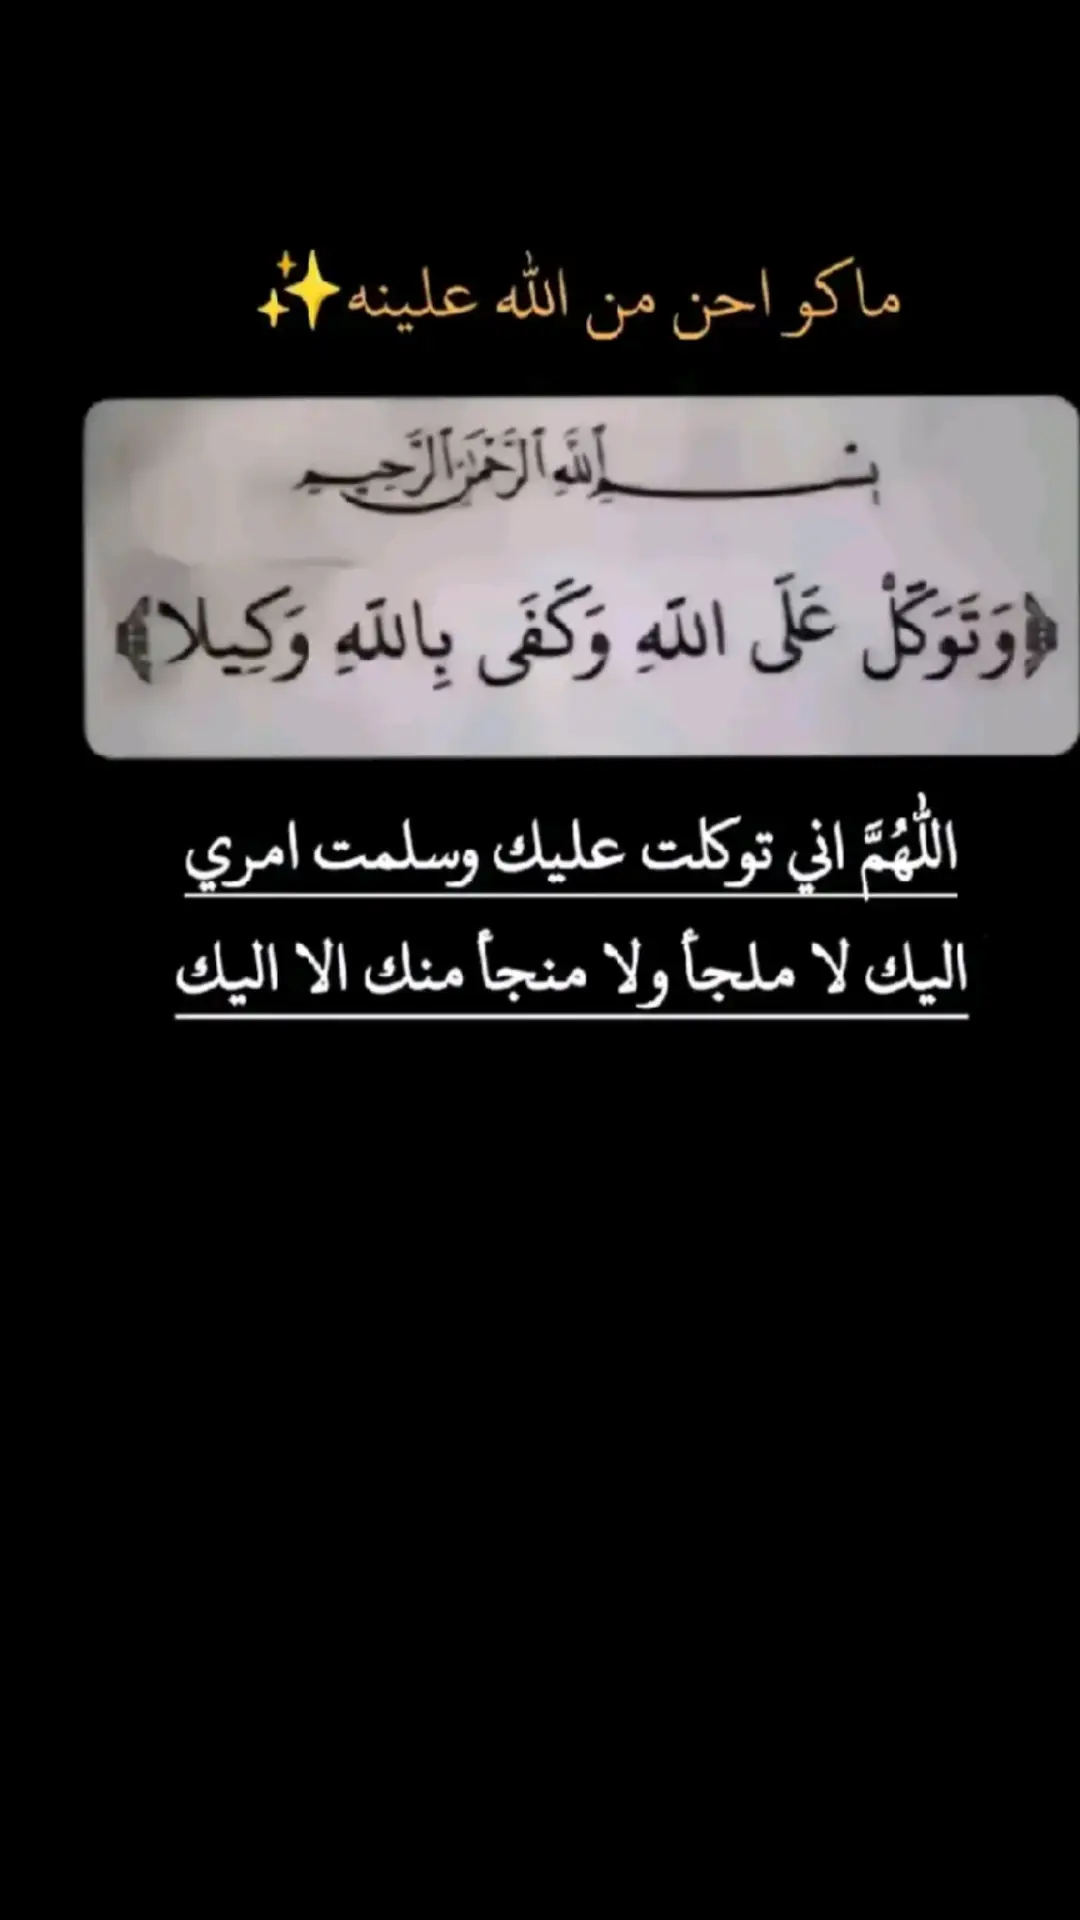 ماكو احن من الله علينه✨
بِسْمِ ٱللَّهِ ٱلرَّحْمَٰنِ ٱلرَّحِيمِ
﴿وَتَوَكَّلْ عَلَى اللَّهِ وَكَفَى بِاللَّهِ وَكِيلا﴾
اللّٰهُمَّ اني توكلت عليك وسلمت امري
اليك لا ملجأ ولا منجأ منك الا اليك